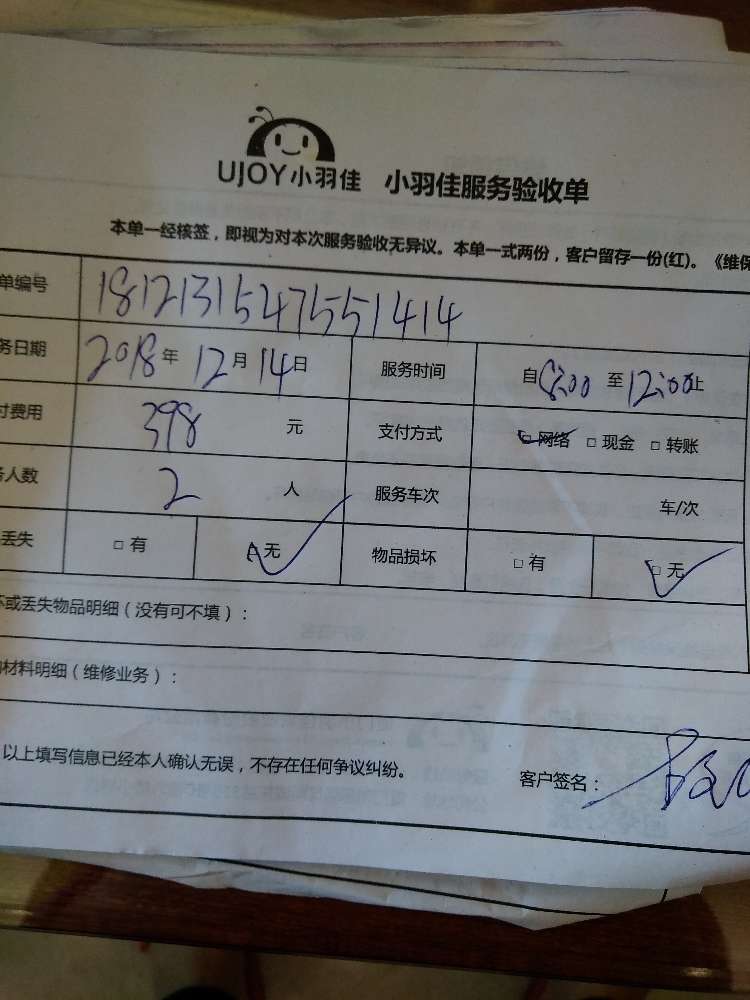 UJOY小羽佳 小羽佳服务验收单
本单一经核签，即视为对本次服务验收无异议。本单一式两份，客户留存一份(红)。《维保
单编号 1812131547551414
务日期 2018年 12月 14日 服务时间 自8:00 至12:00止
付费用 398 元 支付方式 □ 网络 □ 现金 □ 转账
务人数 2 人 服务车次 车/次
丢失 □ 有 □ 无 物品损坏 □ 有 □ 无
坏或丢失物品明细（没有可不填）：
材料明细（维修业务）：
以上填写信息已经本人确认无误，不存在任何争议纠纷。 客户签名：